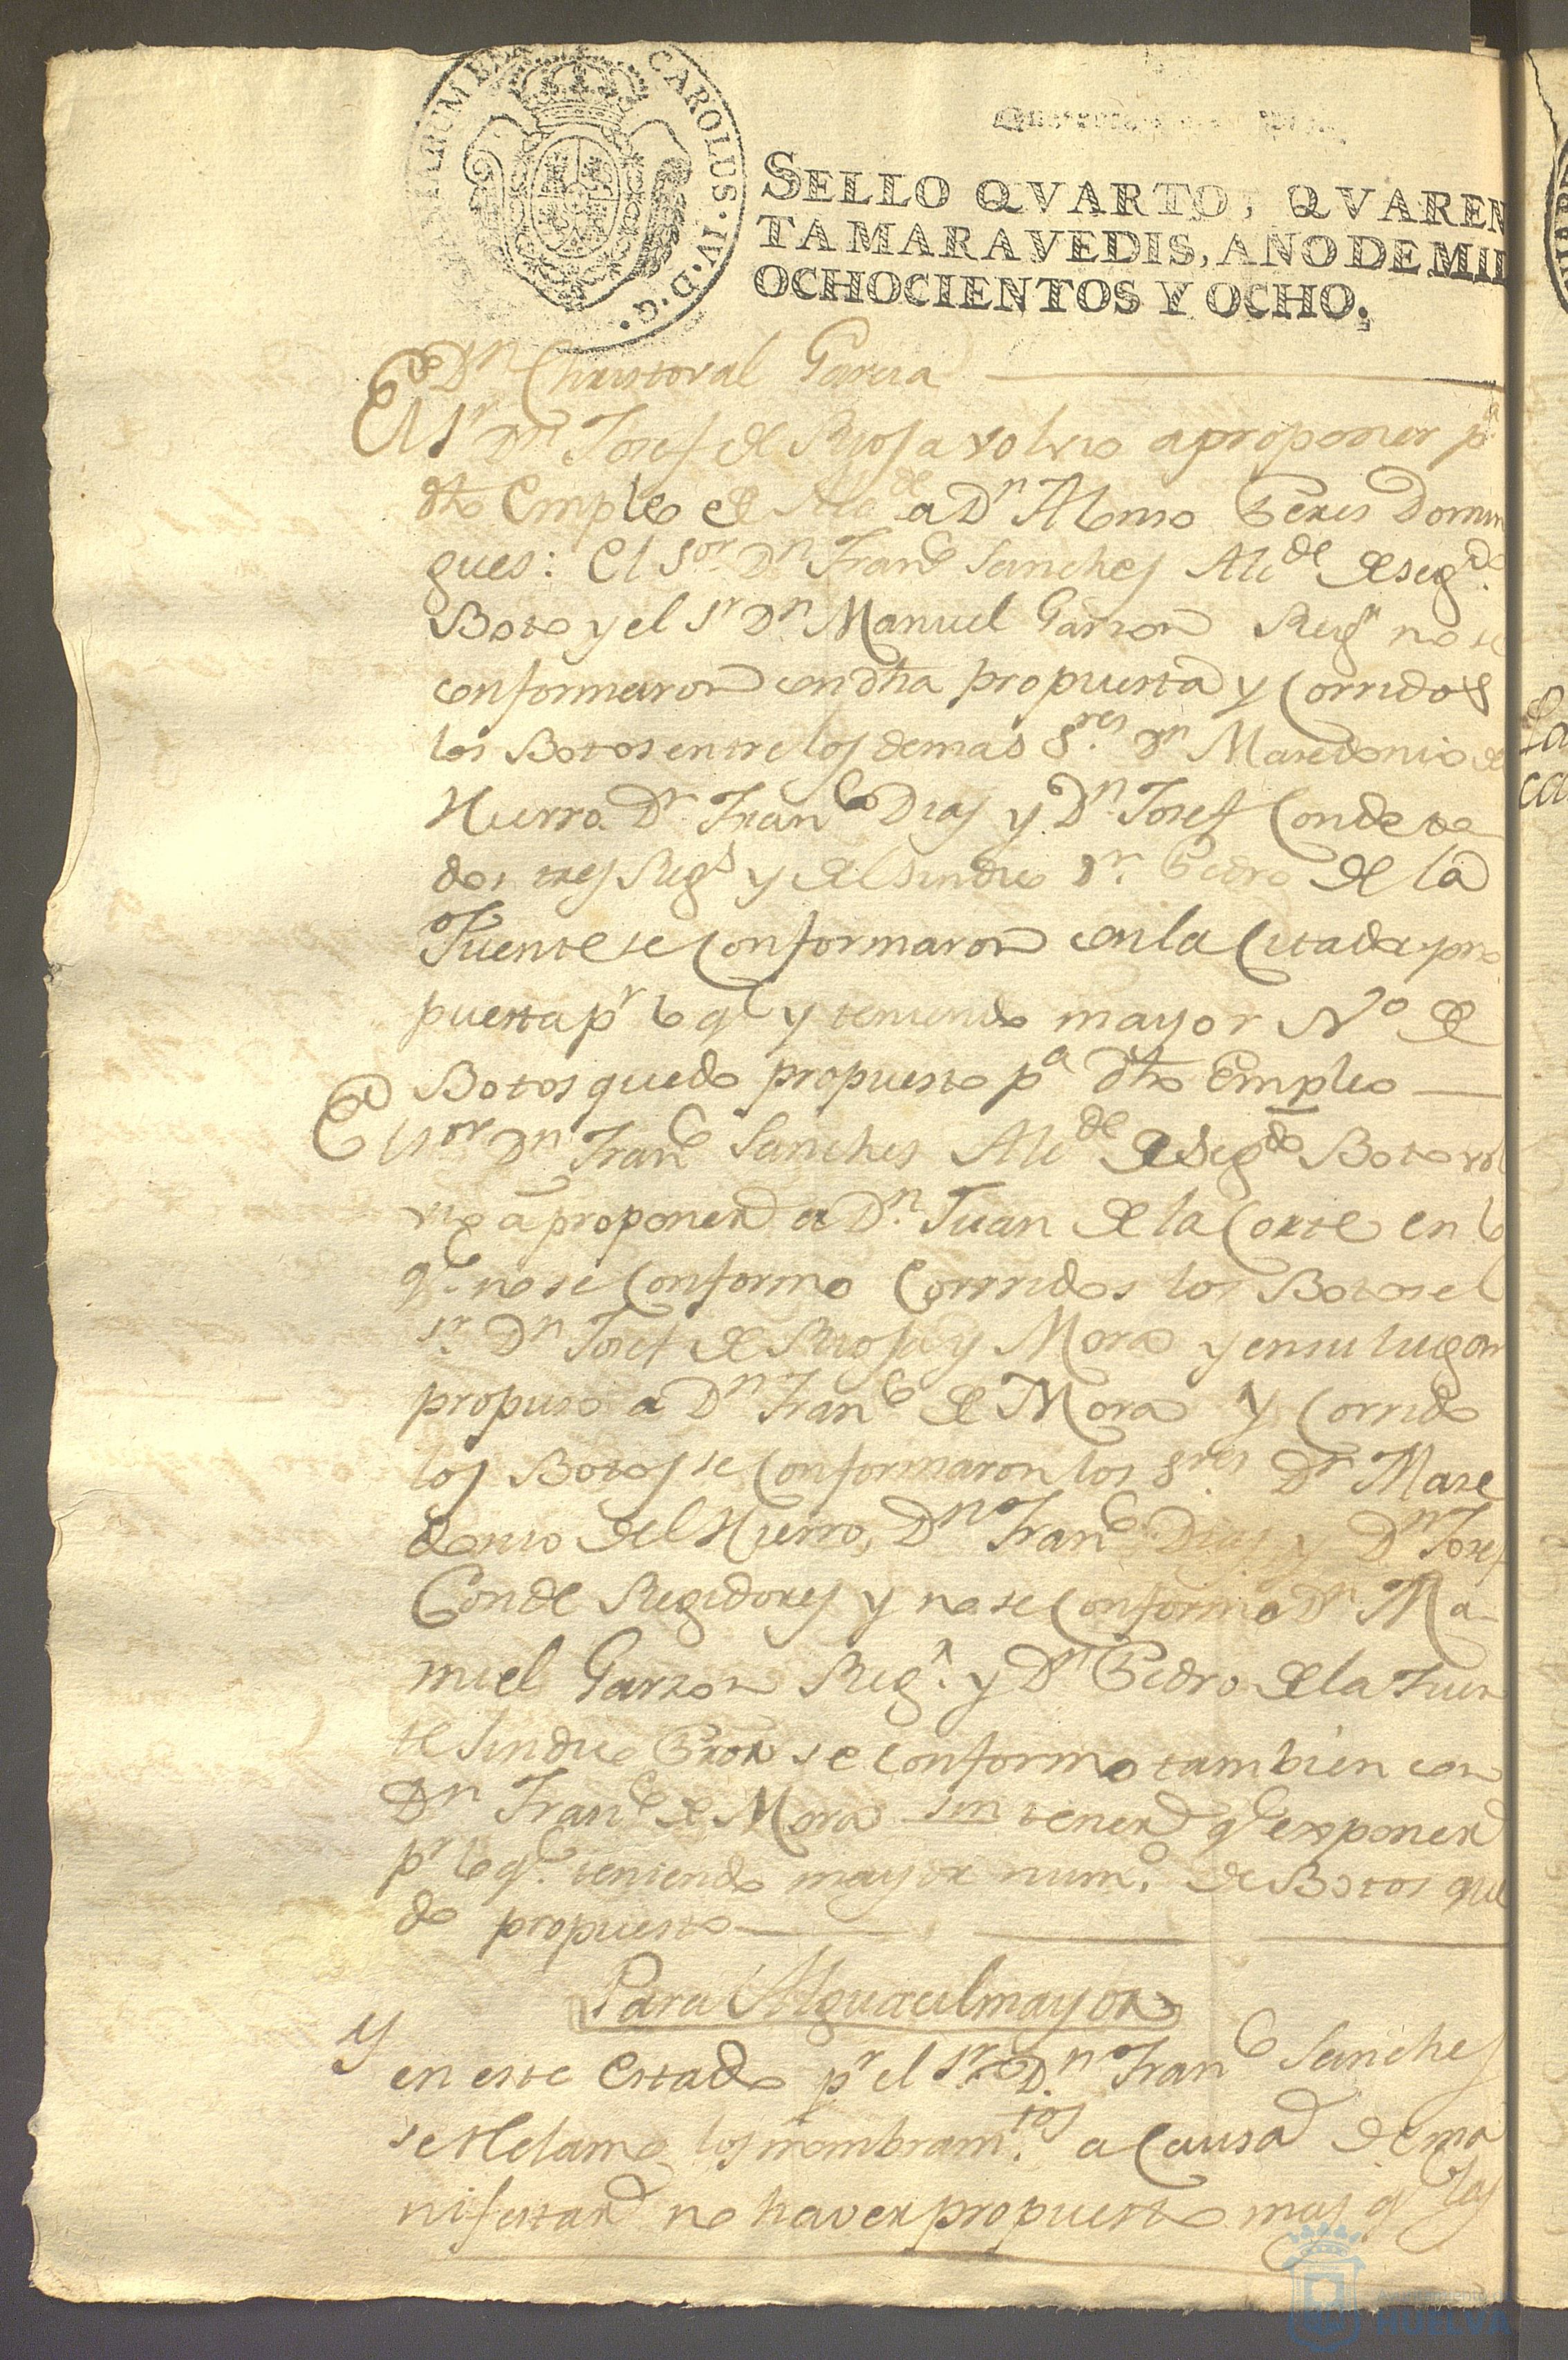 HISPANIARUM REX CAROLUS·IV·D·G·
SELLO QVARTO, QVAREN
TA MARAVEDIS, AÑO DE MIL
OCHOCIENTOS Y OCHO.
Dn Christoval Garcia
El Sr Dn Josef de Rioja volvio a proponer pa
dho Empleo de Alcde a Dn Alonso Peres Domin
gues: El Sor Dn Franco Sanches Alcde de segdo
Boto y el Sr Dn Manuel Garzon Regr no se
conformaron con dha propuesta y Corridos
los Botos entre los demas Sres Dn Masedonio de
Hierro Dn Franco Dias y Dn Josef Conde to
dos tres Regs y del Sindico Dn Pedro de la
Fuente se Conformaron con la Citada pro
puesta pr lo ql y teniendo mayor No de
Botos quedo propuesto pa dho Empleo
El Sor Dn Franco Sanches Alcde de Segdo Boto vol
vio a proponer a Dn Juan de la Corte en lo
qe no se Conformo Corridos los Botos el
Sr Dn Josef de Rioja y Mora y en su lugar
propuso a Dn Franco de Mora y Corrido
los Botos se Conformaron los Sres Dn Mase
donio del Hierro, Dn Franco Dias y Dn Josef
Conde Regidores y no se Conformo Dn Ma-
nuel Garzon Regr y Dn Pedro de la Fuen
te Sindico Pror se conformo tambien con
Dn Franco de Mora sin tener qe exponer
pr lo qe teniendo mayor numo de Botos que
do propuesto
Para Alguacil mayor
Y
en este Estado pr el Sr Dn Franco Sanches
se Reclamo los nombramtos a Causa de ma
nifestar no haver propuesto mas qe los
HUELVA